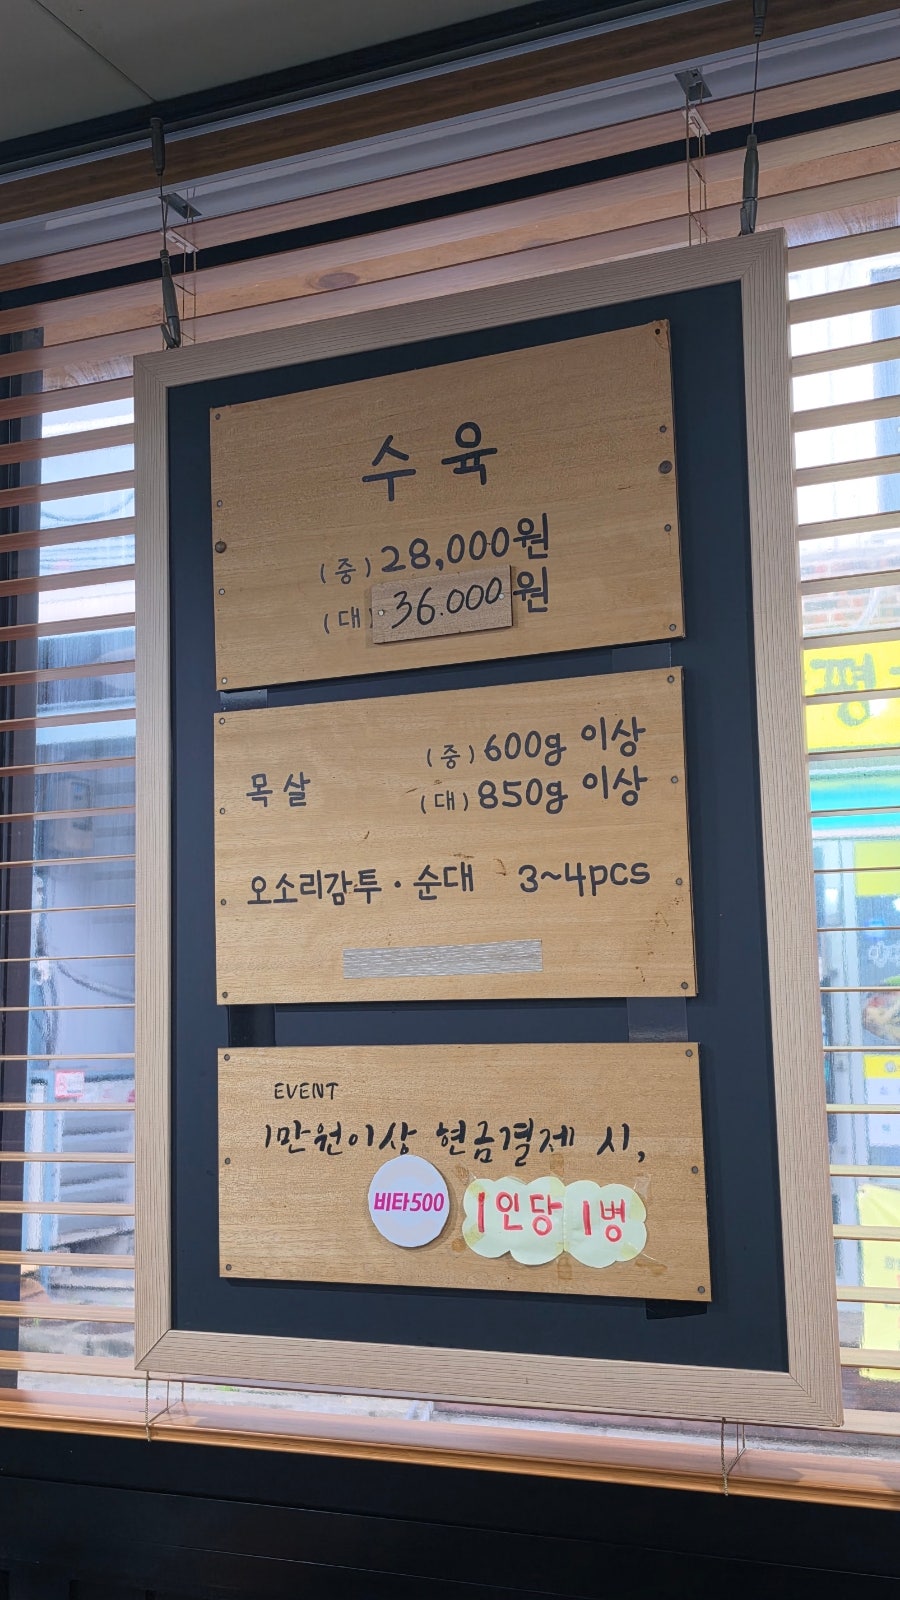 수육
(중) 28,000원
(대) 36.000원
목살
(중) 600g 이상
(대) 850g 이상
오소리감투·순대 3~4pcs
EVENT
1만원이상 현금결제 시,
비타500 1인당 1병
평